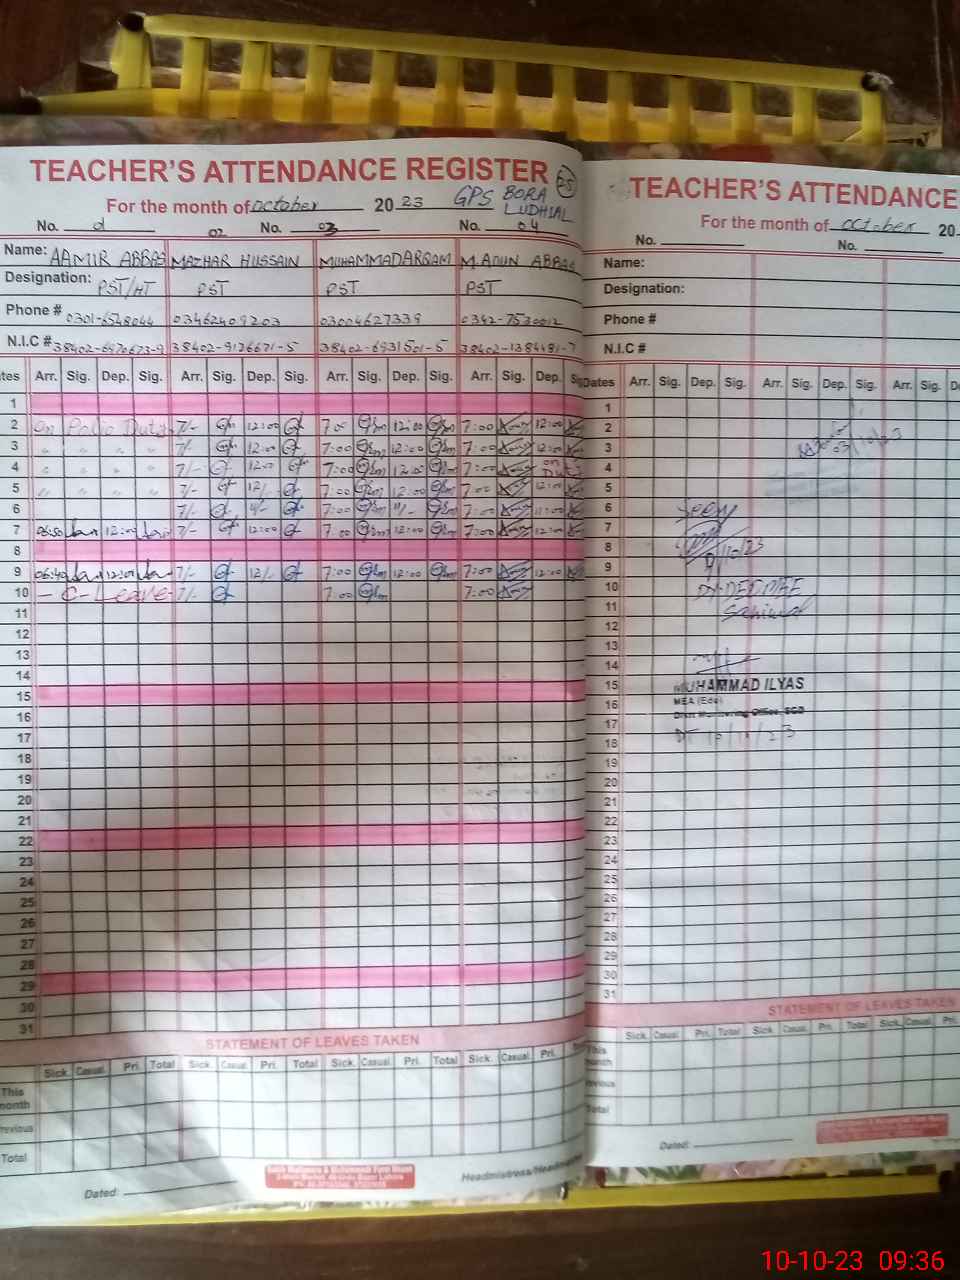 TEACHER'S ATTENDANCE REGISTER
For the month of October 2023 GPS BORA LUDHIAL
No. 02 No. 03 No. 04
Name: AAMIR ABBAS MAZHAR HUSSAIN MUHAMMAD ARQAM M. ADUN ABBAS
Designation: PST/HT PST PST PST
Phone # 0301-6548044 03462409203 03004627339 0342-7530012
N.I.C # 38402-6970673-9 38402-9126671-5 38402-6931501-5 38402-1384481-7
Arr. Sig. Dep. Sig. Arr. Sig. Dep. Sig. Arr. Sig. Dep. Sig. Arr. Sig. Dep.
1
2 On Polio Duty 7/- 12:00 7:00 12:00 7:00 12:00
3 " " " " 7/- 12:00 7:00 12:00 7:00 12:00
4 " " " " 7/- 12:00 7:00 12:00 7:00 on Duty
5 " " " " 7/- 12/- 7:00 12:00 7:00 12:00
6 7/- 11/- 7:00 11/- 7:00 11:00
7 06:50 12:00 7/- 12:00 7:00 12:00 7:00 12:00
8
9 06:40 12:00 7/- 12/- 7:00 12:00 7:00 12:00
10 - C-Leave - 7/- 7:00 7:00
11
12
13
14
15
16
17
18
19
20
21
22
23
24
25
26
27
28
29
30
31
STATEMENT OF LEAVES TAKEN
Sick. Casual. Pri. Total Sick. Casual. Pri. Total Sick. Casual. Pri. Total Sick. Casual. Pri.
This month
Total
Dated:
TEACHER'S ATTENDANCE
For the month of October 20
No. No.
Name:
Designation:
Phone #
N.I.C #
Dates Arr. Sig. Dep. Sig. Arr. Sig. Dep. Sig. Arr. Sig.
1
2
3 03/10/23
4
5
6 Seen
7
8 9/10/23
9
10 DY DEO MEE
11 Sahiwal
12
13
14
15 MUHAMMAD ILYAS
16 MEA (Edu)
17
18 DT 10/10/23
19
20
21
22
23
24
25
26
27
28
29
30
31
STATEMENT OF LEAVES TAKEN
Sick Casual Pri. Total Sick. Casual. Pri. Total Sick. Casual. Pri.
This month
Total
Dated:
10-10-23 09:36